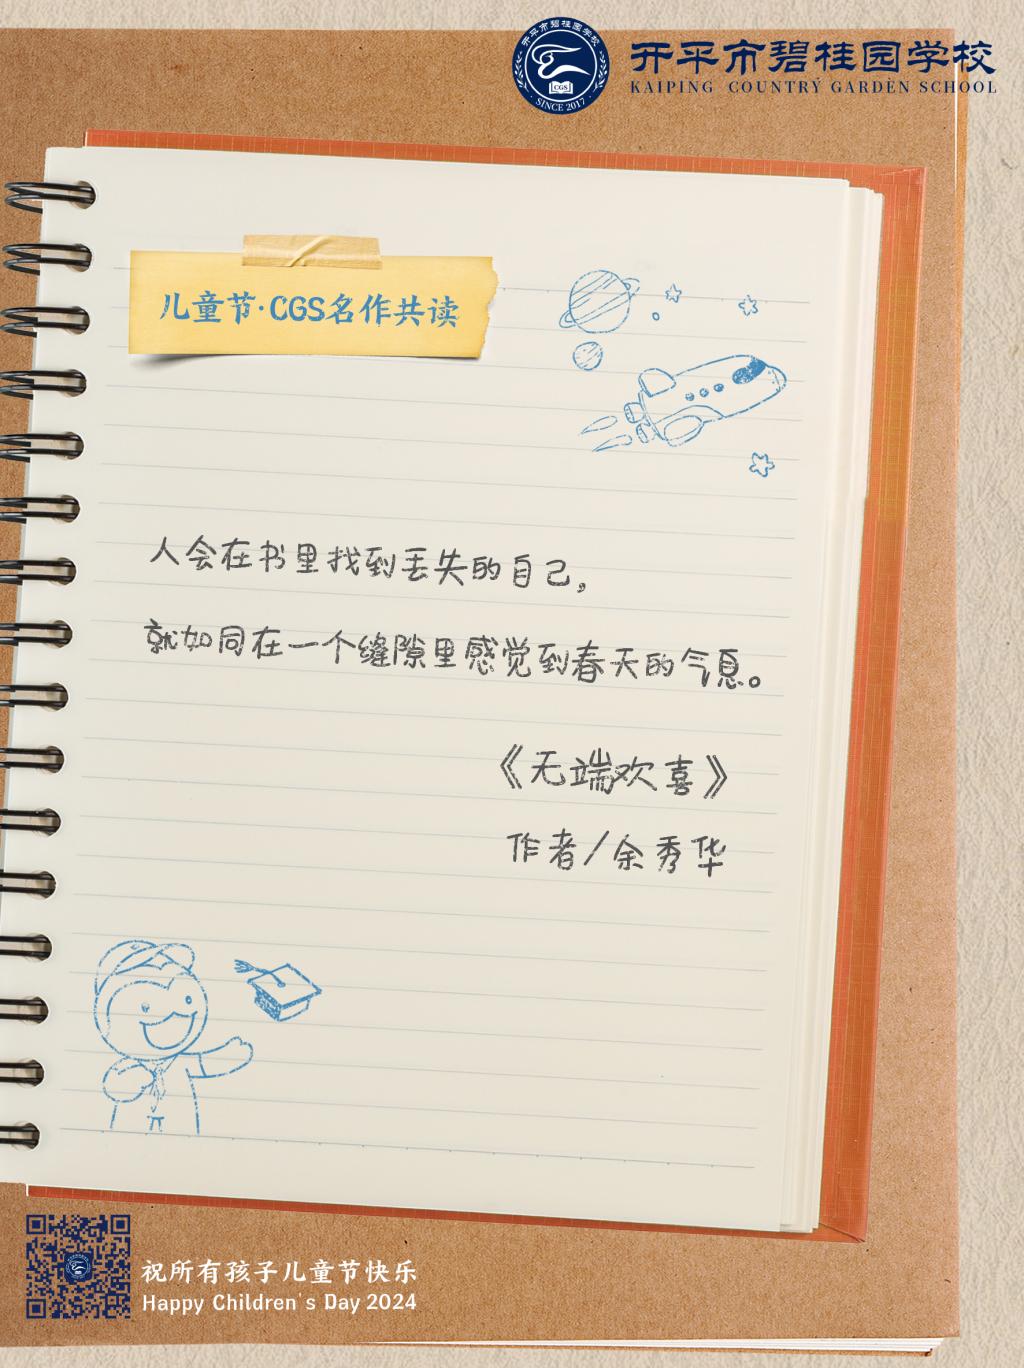 开平市碧桂园学校
CGS
SINCE 2017
开平市碧桂园学校
KAIPING COUNTRY GARDEN SCHOOL
儿童节·CGS名作共读
人会在书里找到丢失的自己，
就如同在一个缝隙里感觉到春天的气息。
《无端欢喜》
作者/余秀华
祝所有孩子儿童节快乐
Happy Children's Day 2024